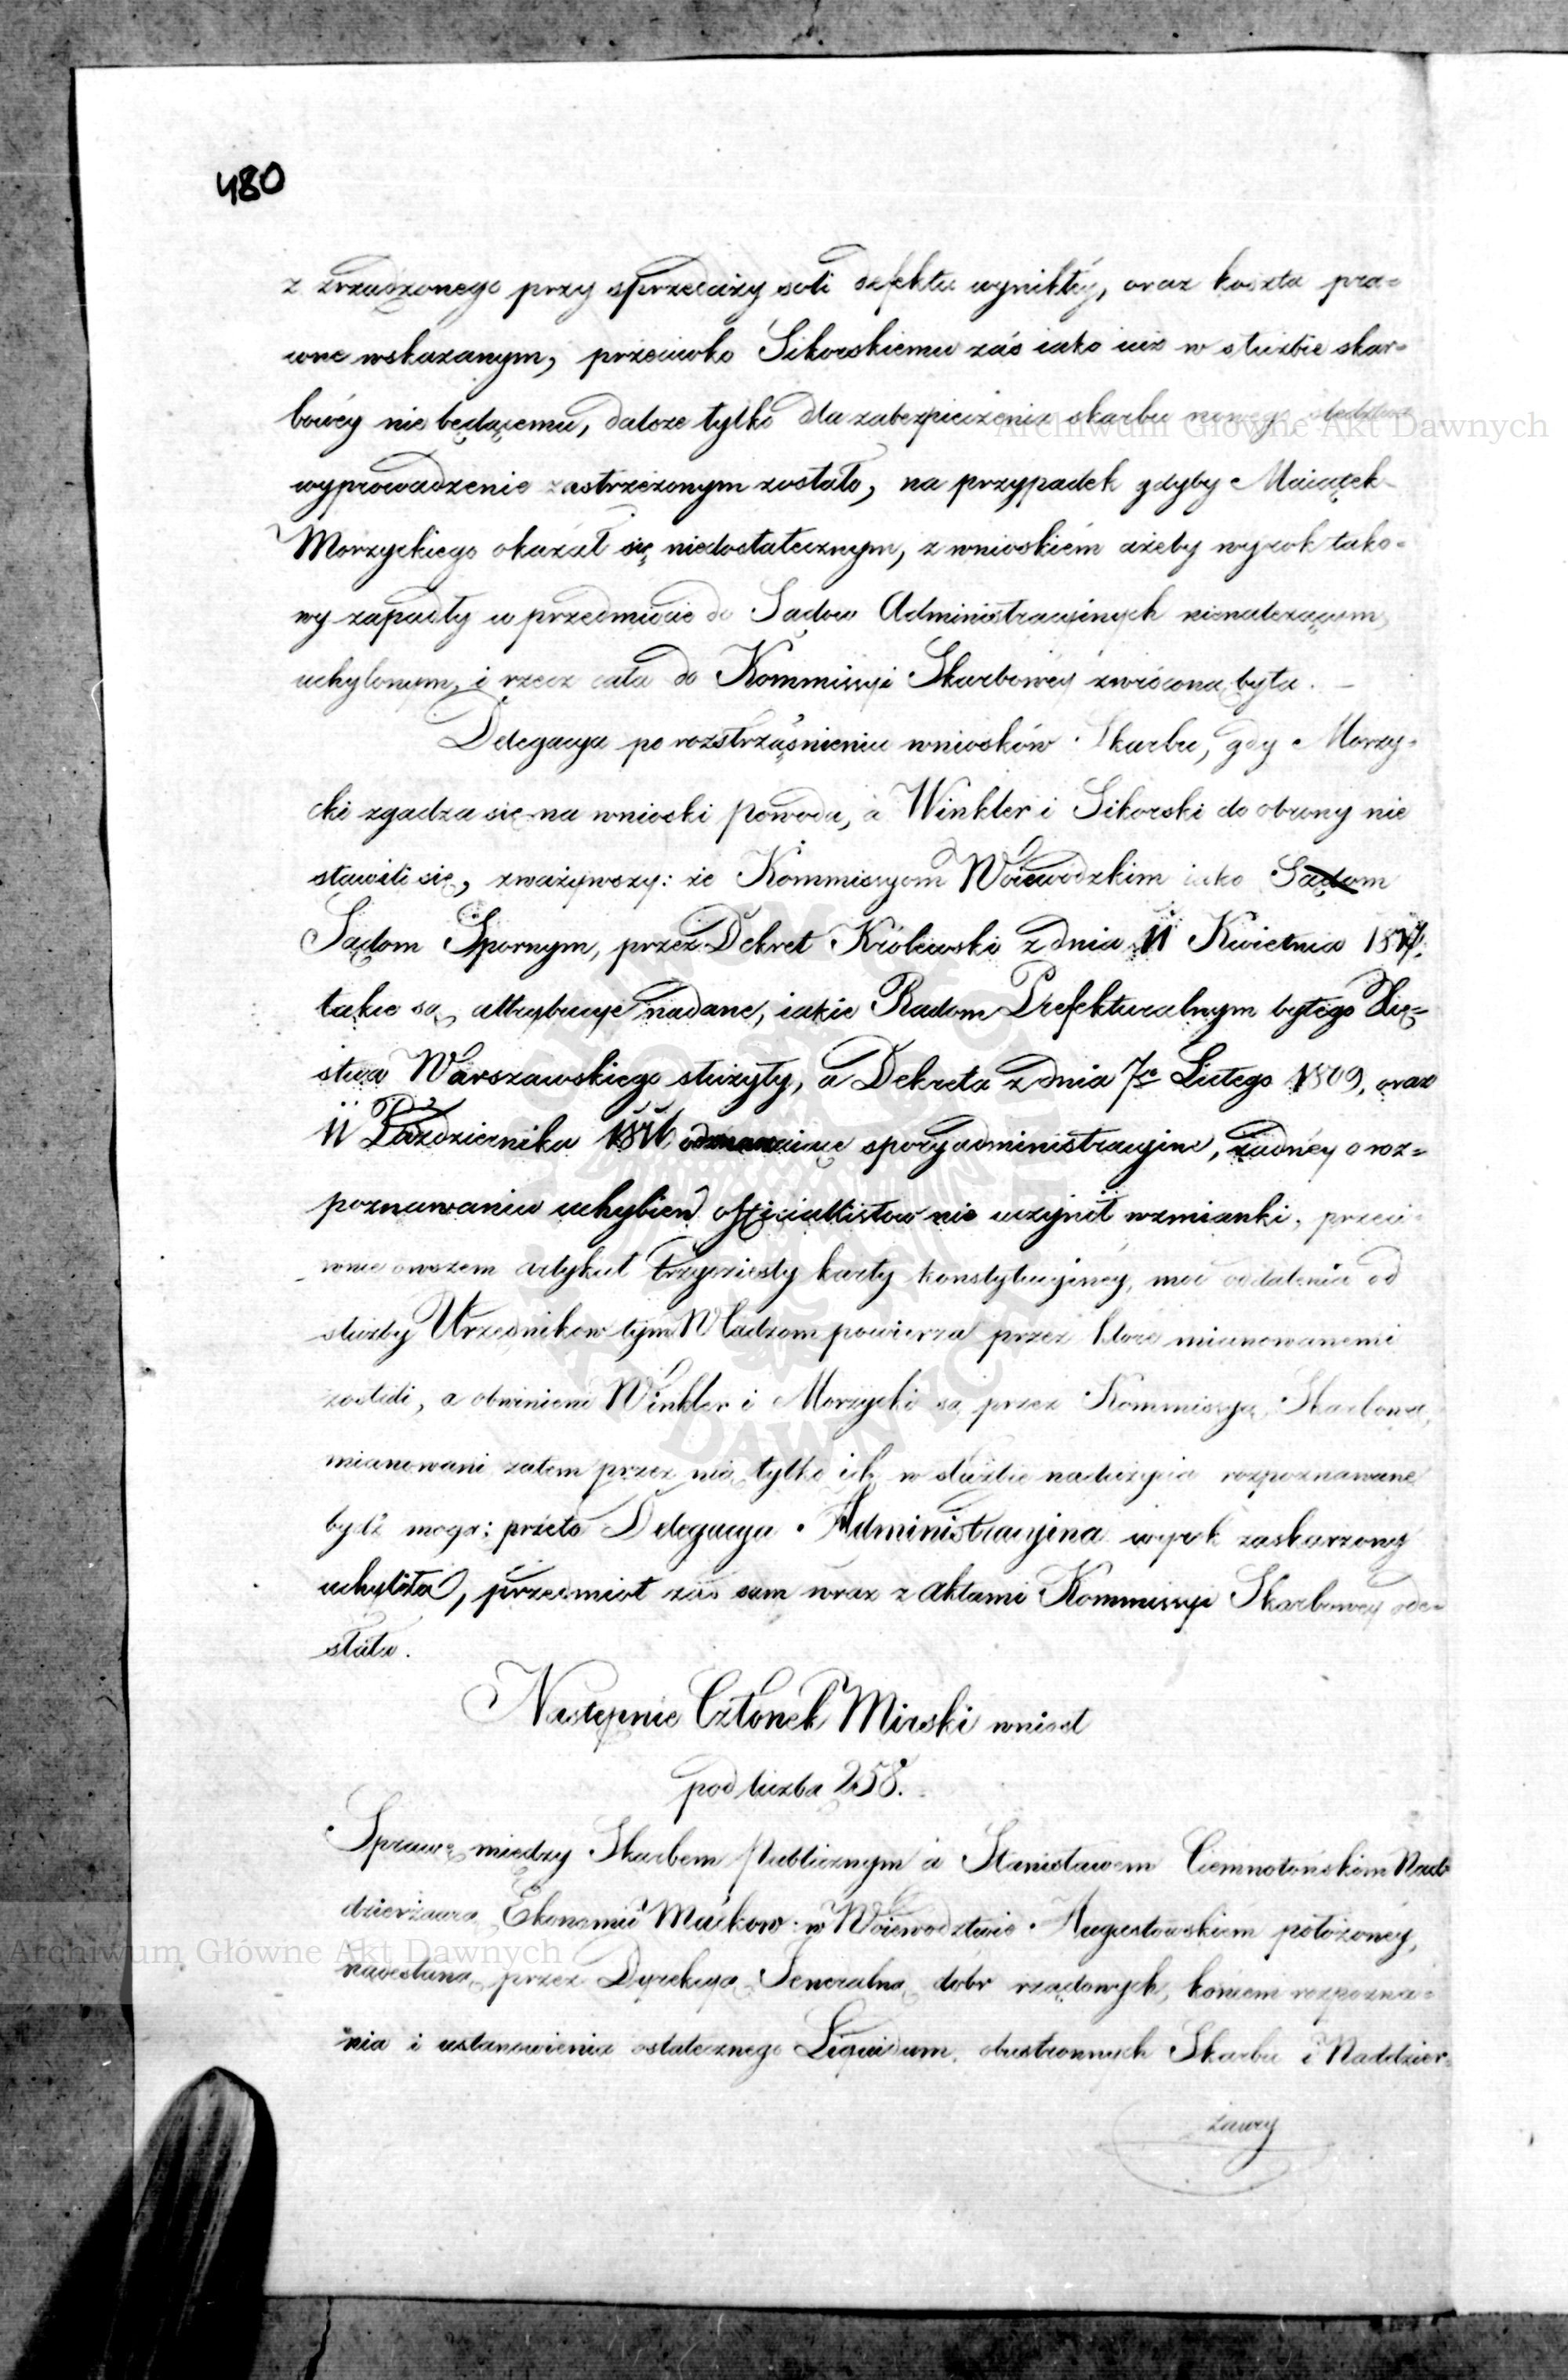 480
z zrządzonego przy sprzedaży soli defektu wynikłéy, oraz koszta pra=
wne wskazanym, przeciwko Sikorskiemu zaś iako iuż w służbie skar=
bowéy nie będącemu, dalsze tylko dla zabezpieczenia skarbu nowego śledztwa
wyprowadzenie zastrzeżonym zostało, na przypadek gdyby Maiątek
Morzyckiego okazał się niedostatecznym, z wnioskiem ażeby wyrok tako=
wy zapadły w przedmiocie do Sądow Administracyinych nienależącym,
uchylonym, i rzecz cała do Kommissyi Skarbowéy zwrócona, była. —
Delegacya po rozstrząśnieniu wniosków Skarbu, gdy Morzy=
cki zgadza się na wnioski powoda, a Winkler i Sikorski do obrony nie
stawili się, zważywszy: że Kommissyom Woiewódzkim iako Sądom
Sądom Spornym, przez Dekret Królewski z dnia 11 Kwietnia 1817.
takie są attrybucye nadane, iakie Radom Prefekturalnym byłego Xię=
stwa Warszawskiego służyły, a Dekreta z dnia 7go Lutego 1809, oraz
11 Października 18 spory administracyine, żadnéy o roz=
poznawaniu uchybień officiallistow nie uczynił wzmianki, przeci=
wnie owszem artykuł trzydziesty karty konstytucyinéy, moc oddalenia od
służby Urzędnikow tym Władzom powierza przez które mianowanemi
zostali, a obwinieni Winkler i Morzycki są przez Kommissyą Skarbową,
mianowani zatem przez nią tylko ich w służbie nadużycia rozpoznawane
bydź mogą: przeto Delegacya Administracyina wyrok zaskarżony
uchyliła, przedmiot zaś sam wraz z aktami Kommissyi Skarbowéy ode=
słała.
Następnie Członek Mirski wniosł
pod liczbą 258.
Sprawę między Skarbem Publicznym a Stanisławem Ciemnołońskim Nad=
dzierżawcą Ekonomii Maćkow w Woiewództwie Augustowskiem położonéy,
nadesłaną przez Dyrekcyą Jeneralną dóbr rządowych, końcem rozpozna=
nia i ustanowienia ostatecznego Liquidum obustronnych Skarbu i Naddzier=
żawcy
Archiwum Główne Akt Dawnych
Archiwum Główne Akt Dawnych